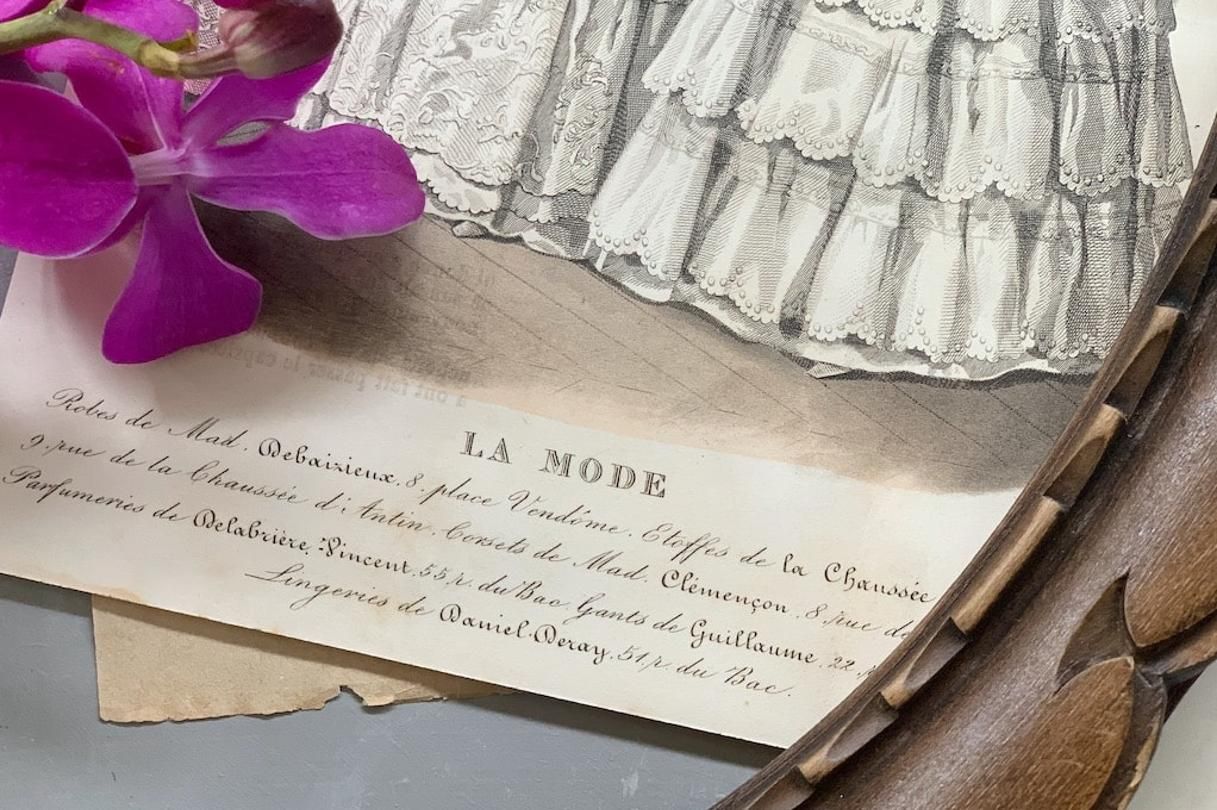 LA MODE
Robes de Mad. Debaizieux, 8, place Vendôme. Etoffes de la Chaussée
9, rue de la Chaussée d'Antin. Corsets de Mad. Clémençon, 8, rue de
Parfumeries de Delabrière-Vincent, 55, r. du Bac. Gants de Guillaume, 22, r.
Lingeries de Daniel-Deray, 51, r. du Bac.